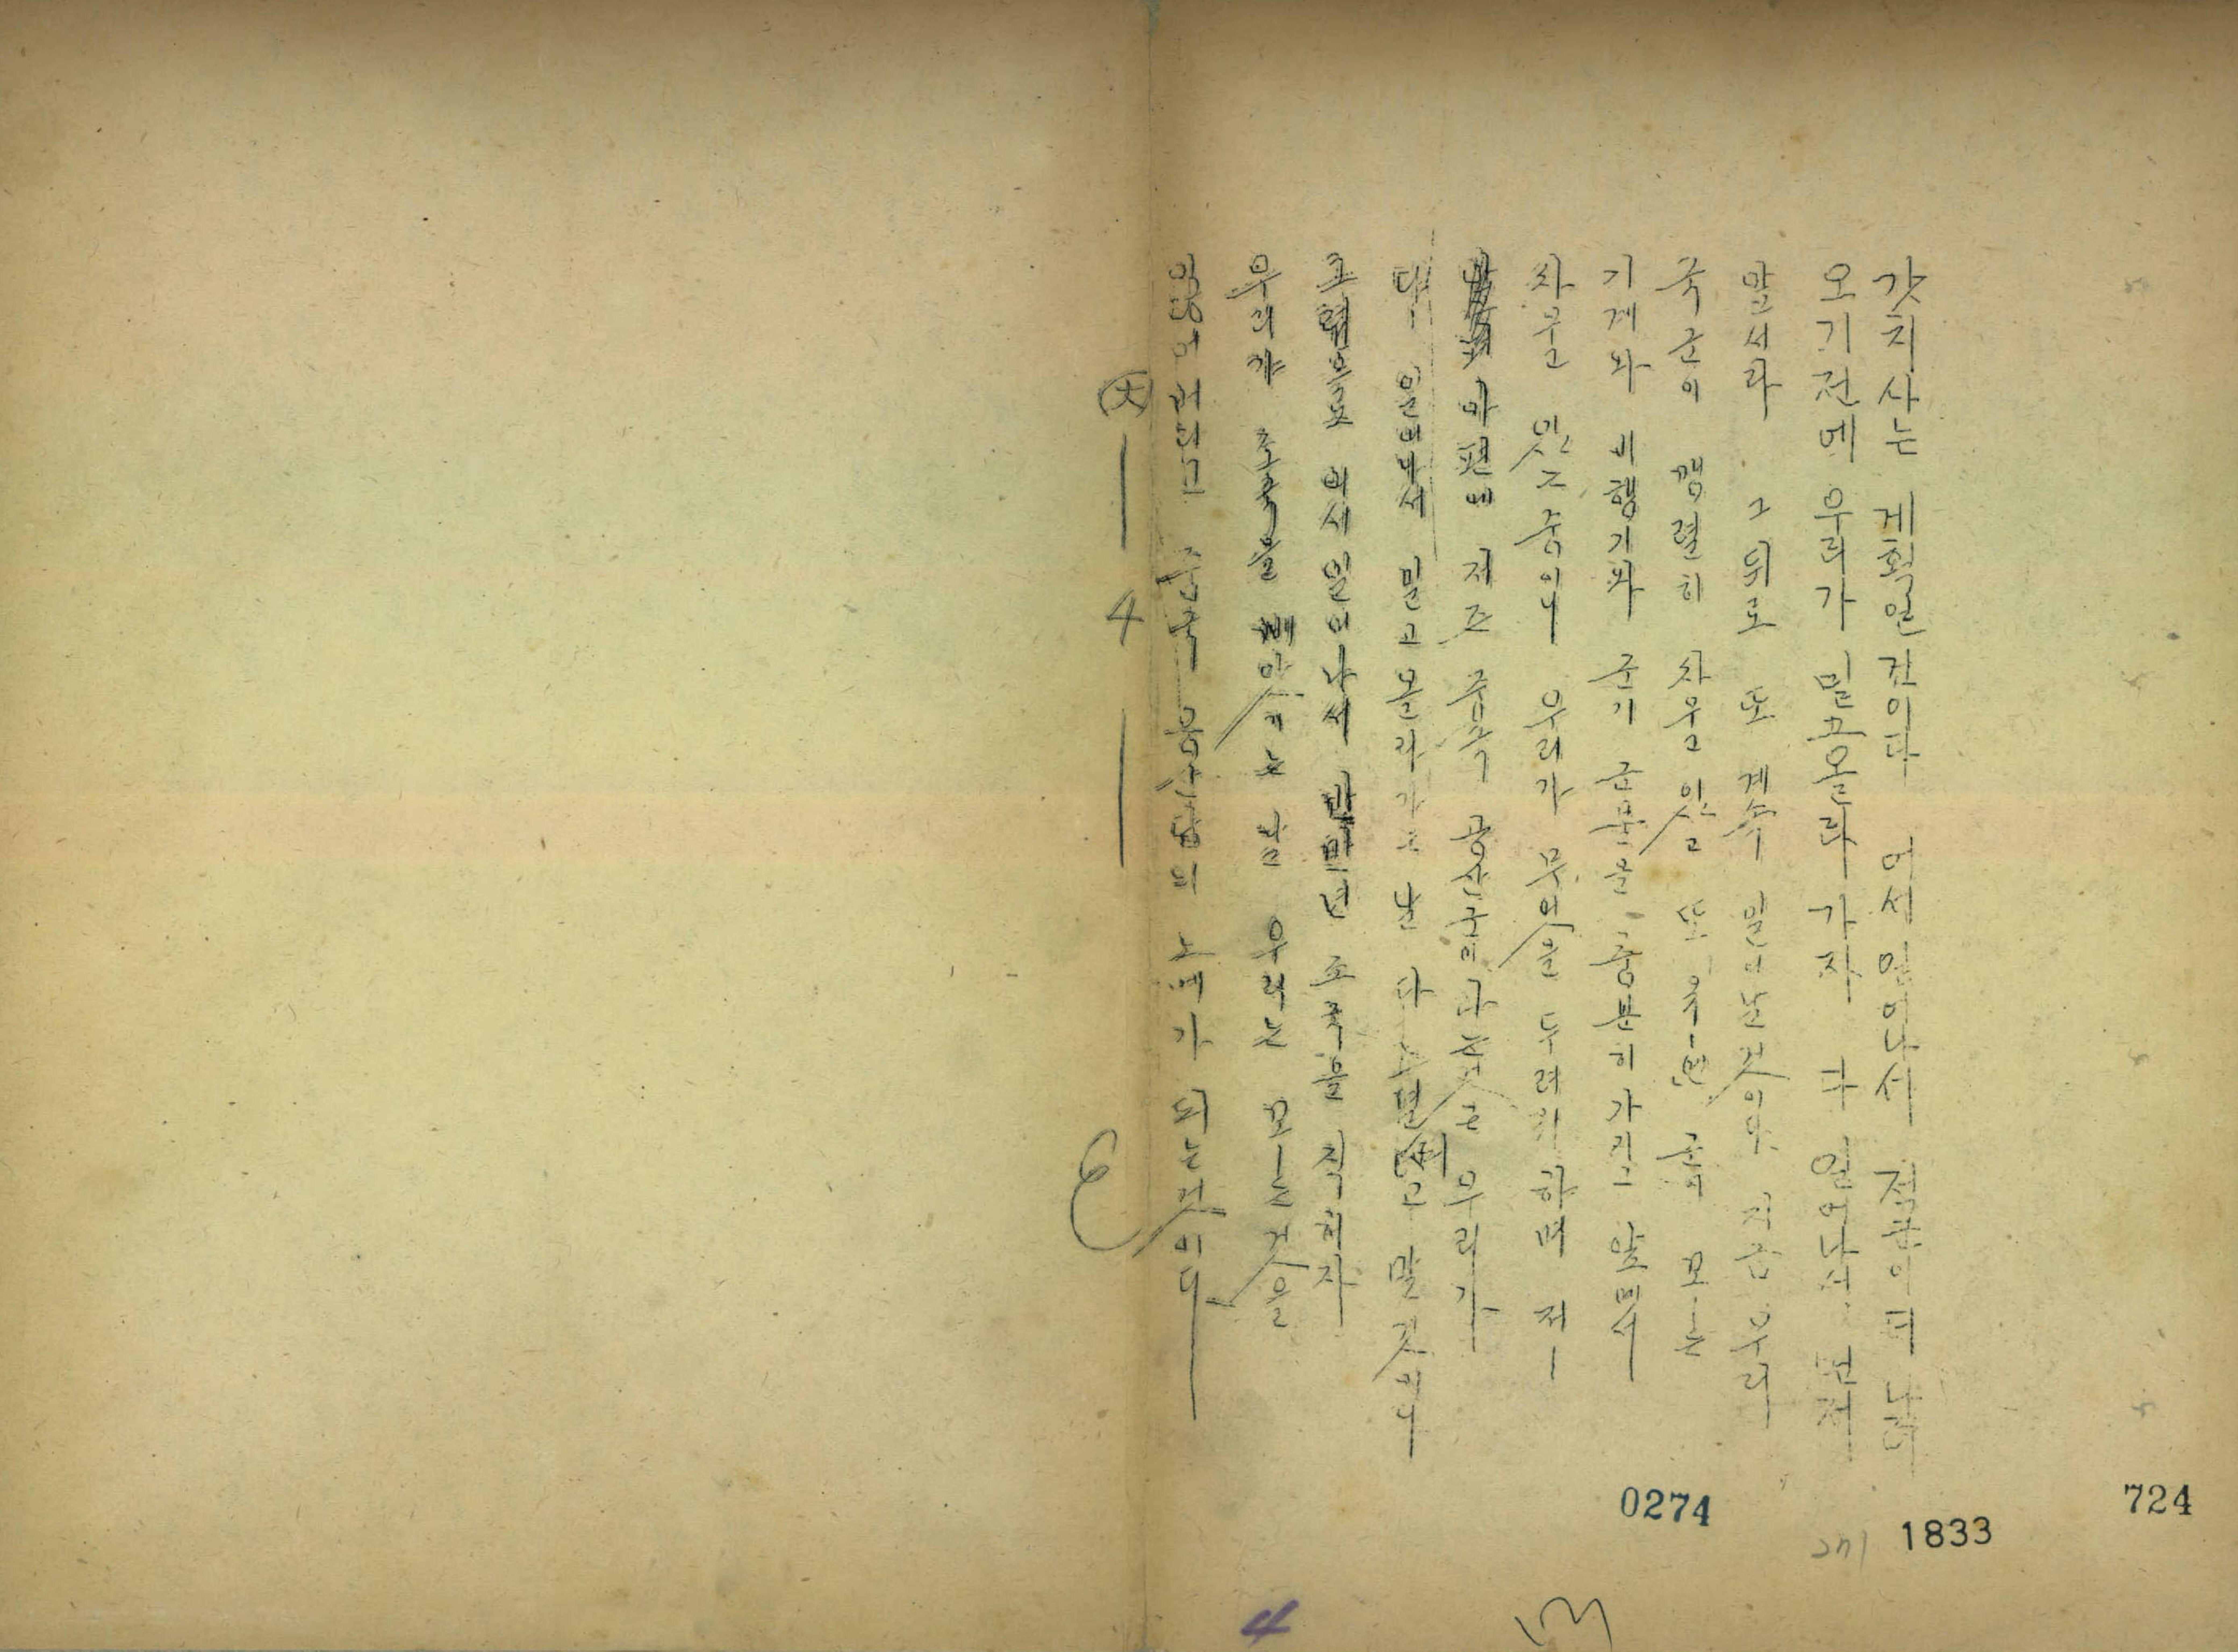 갓치사는 게획일건이다 어서 일어나서 적군이 떠나며
오기전에 우리가 밀고올라 가자 다 일어나서 먼저
앞서라 그 뒤로 또 계속 일어날것이야 지금 우리
국군이 맹렬히 싸우고있고 또 유-엔 군의 모-든
기계와 비행기와 군기 군물을 충분히 가지고 앞에서
싸울고 잇는중이니 우리가 무엇을 두려워하며 저-
아편에 저즌 중국 공산군이라는것은 우리가
대 밀고올라가는 날 다 고 말것이니
으로 어서 일어나서 반만년 조국을 직히자
우리가 조국을 빼앗기는 날 우리는 모-든것을
잃어버리고 중국 공산당의 노예가 되는것이다
4
0274
1833
724
4